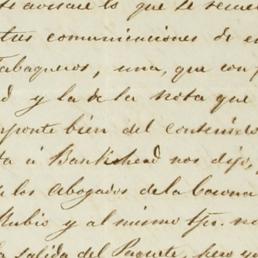 avisarte lo que te
tus comunicaciones de
Tabaqueros, una, que con
d y la de la nota que
imponte bien del contenido
ta á Bankshead nos dijo,
los Abogados de la Corona
Rubio y al mismo tpo. no
la salida del Paquete, pero